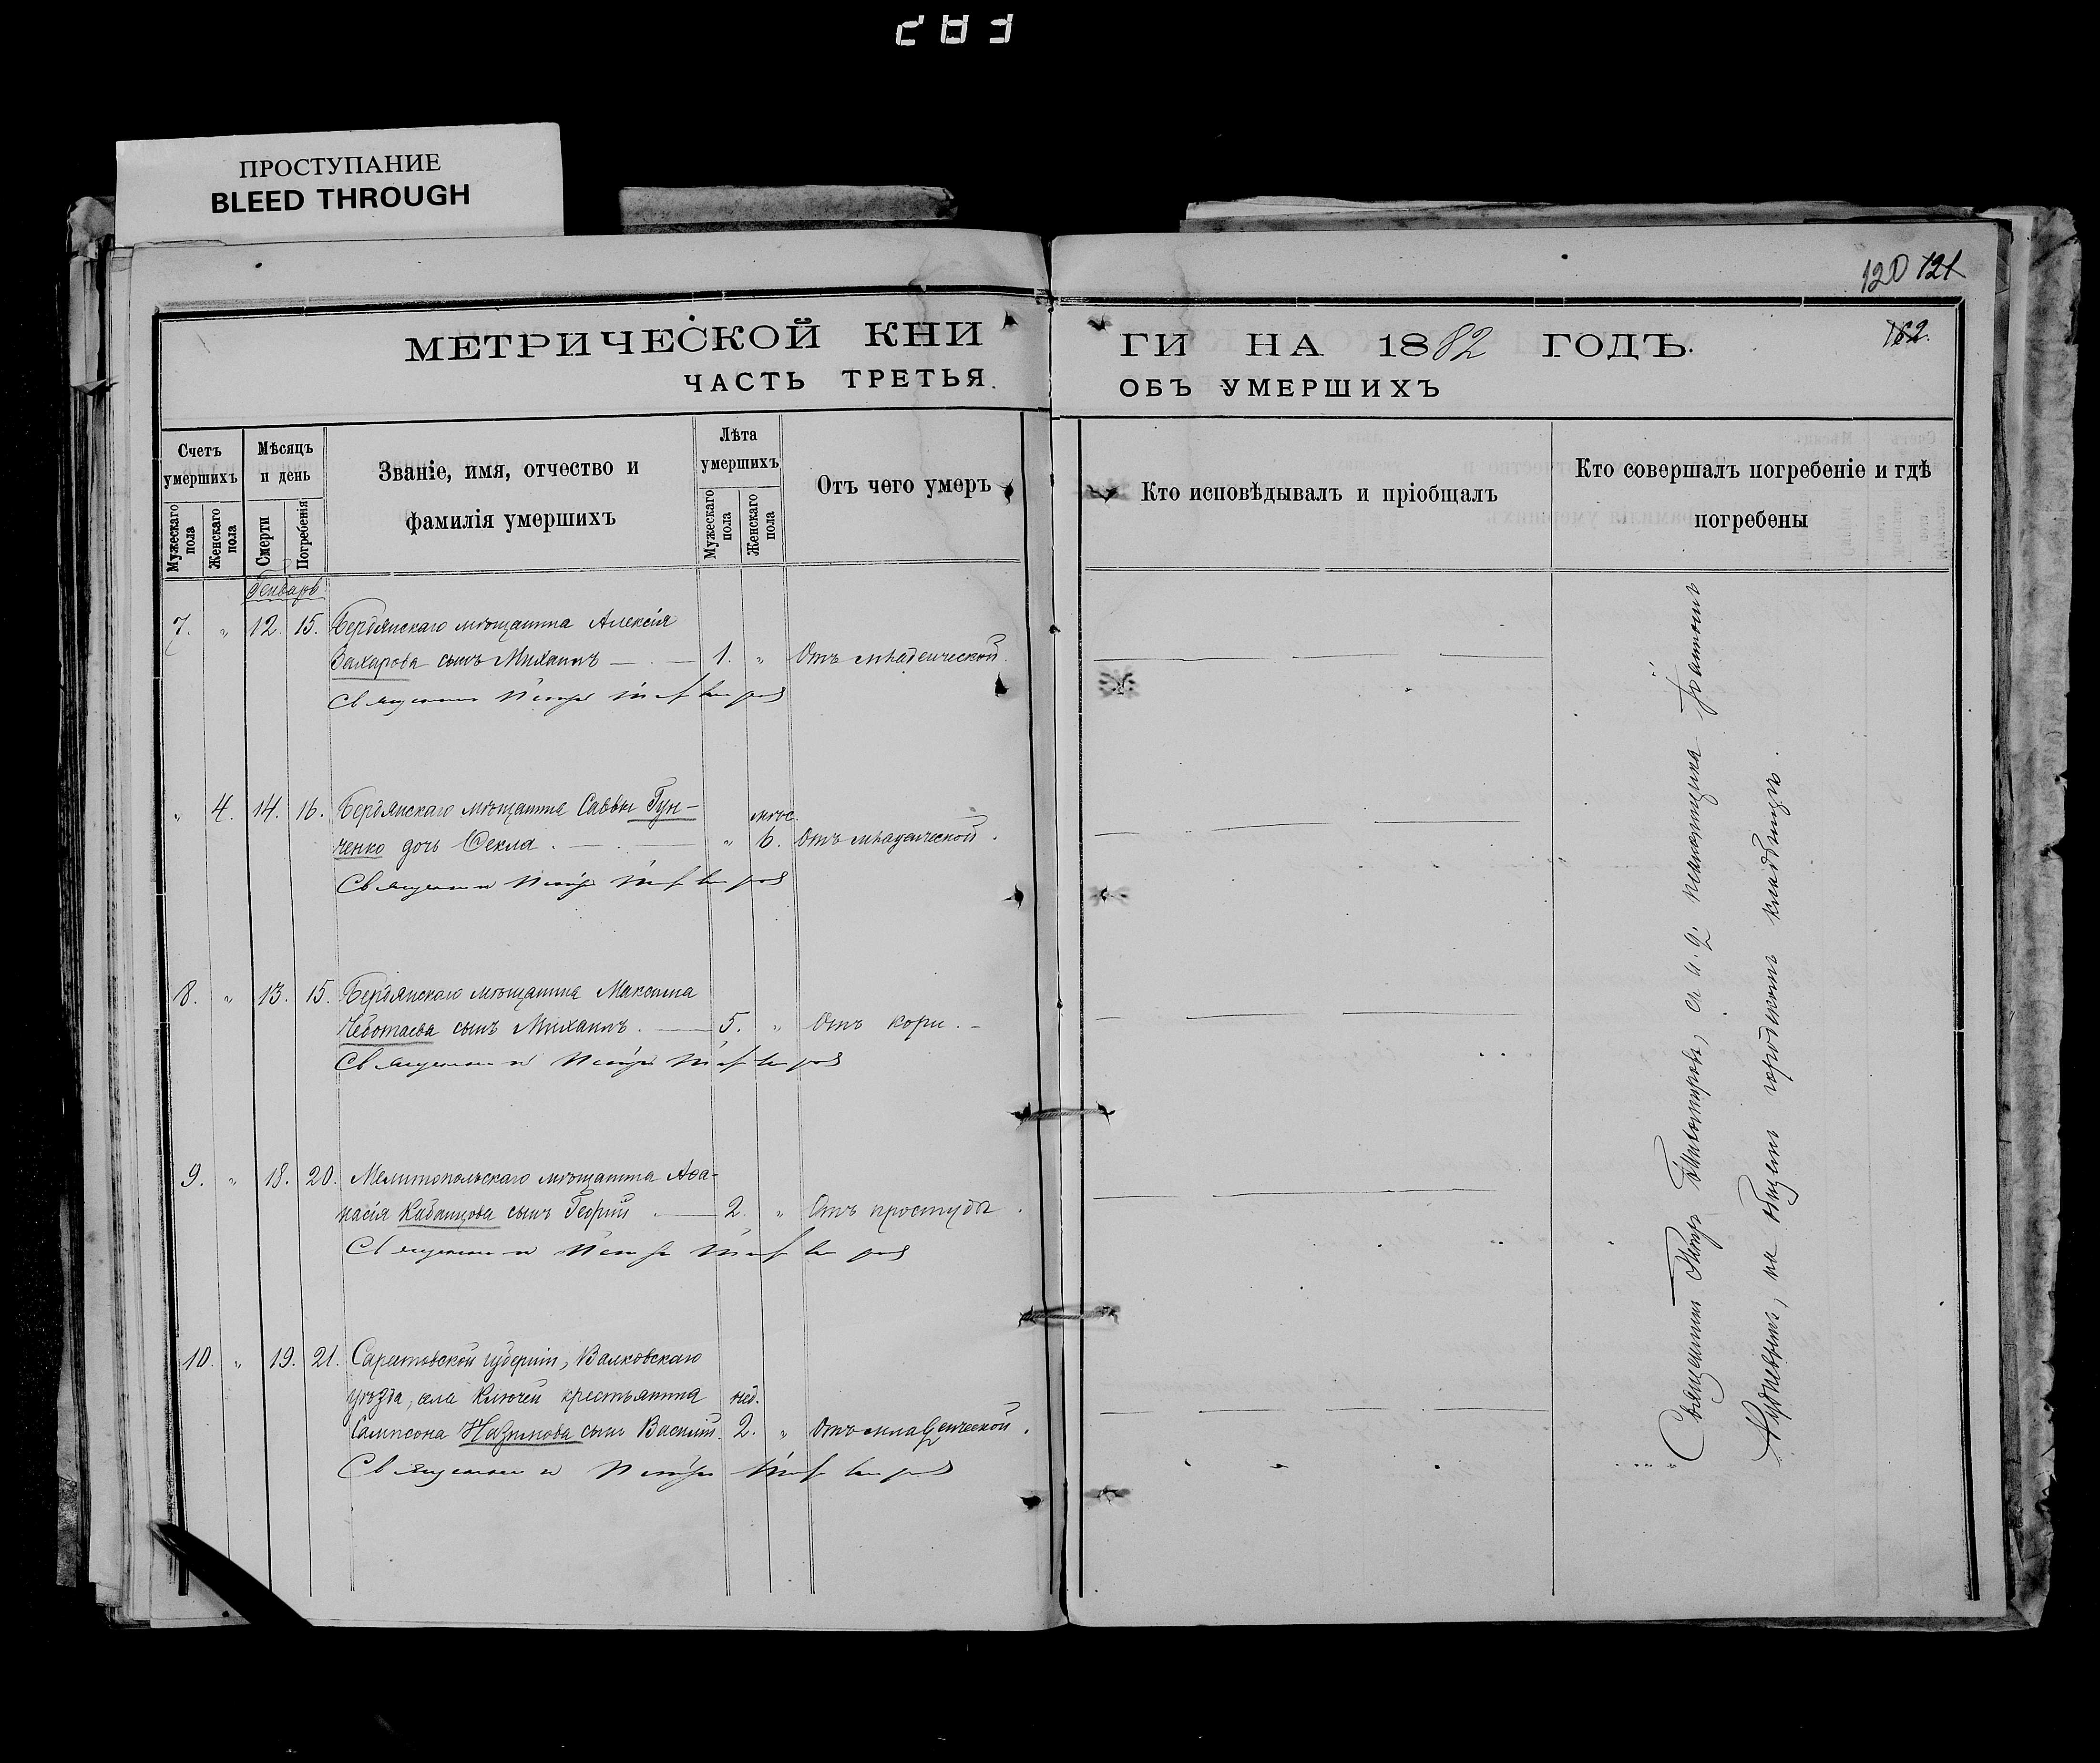 283
ПРОСТУПАНИЕ
BLEED THROUGH
120 121
162.
МЕТРИЧЕСКОЙ КНИ
ГИ НА 1882 ГОДЪ.
ЧАСТЬ ТРЕТЬЯ.
ОБЪ УМЕРШИХЪ
Счетъ умершихъ
Мужескаго пола
Женскаго пола
Мѣсяцъ и день
Смерти
Погребенія
Званіе, имя, отчество и
фамилія умершихъ
Лѣта умершихъ
Мужескаго пола
Женскаго пола
Отъ чего умеръ
Кто исповѣдывалъ и пріобщалъ
Кто совершалъ погребеніе и гдѣ
погребены
Генварь
7. " 12. 15. Бердянскаго мѣщанина Алексія
Захарова сынъ Михаилъ — . — 1. " Отъ младенческой.
Священникъ Петръ
" 4. 14. 16. Бердянскаго мѣщанина Саввы Гун-
мѣс.
ченко дочь Ѳекла . — . — " 6. Отъ младенческой.
Священникъ Петръ
8. " 13. 15. Бердянскаго мѣщанина Максима
Чеботаева сынъ Михаилъ. — 5. " Отъ кори. –
Священникъ Петръ
9. " 18. 20. Мелитопольскаго мѣщанина Аѳа-
насія Кабанцова сынъ Георгій . — 2. " Отъ простуды .
Священникъ Петръ
10. " 19. 21. Саратовской губерніи, Валковскаго
уѣзда, села Ключей крестьянина нед.
Сампсона Назимова сынъ Василій. 2. " Отъ младенческой.
Священникъ Петръ
Священникъ Петръ съ и. д. псаломщика
на общемъ городскомъ кладбищѣ.